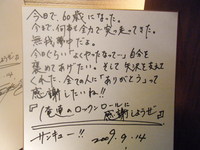 今日で、60歳になった。
今まで、何事も全力で突っ走ってきた。
無我夢中だぁ。
今日ぐらい「よくやったなって…」自分を
褒めてあげたい。そして矢沢を支えて
くれた、全ての人に「ありがとう」って
感謝したいね!!
『俺達のロックンロールに
感謝しようぜ』
サンキュー!!
2009.9.14